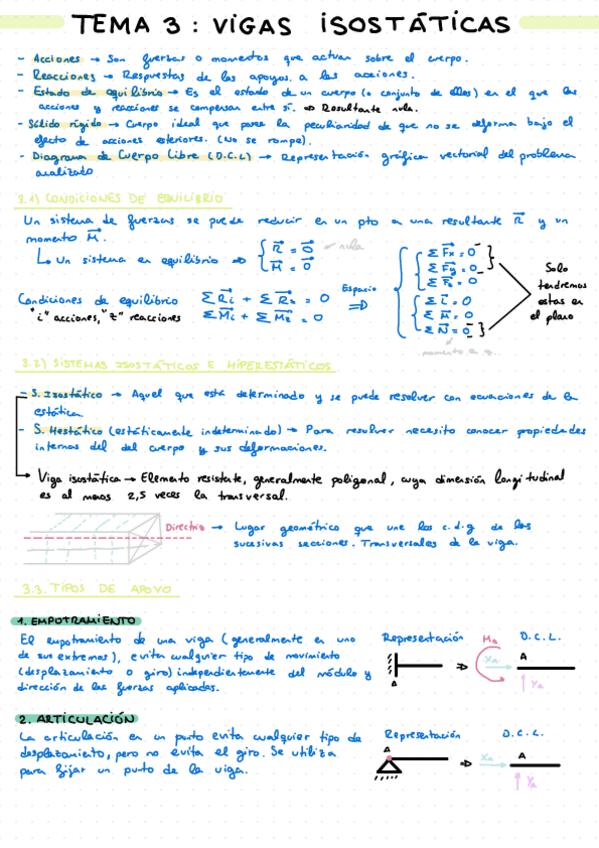 TEMA 3 : VIGAS ISOSTÁTICAS
- Acciones → Son fuerzas o momentos que actuan sobre el cuerpo.
- Reacciones → Respuestas de los apoyos a las acciones.
- Estado de equilibrio → Es el estado de un cuerpo (o conjunto de ellos) en el que las
acciones y reacciones se compensan entre si. ⇒ Resultante nula.
- Sólido rígido → Cuerpo ideal que posee la peculiaridad de que no se deforma bajo el
efecto de acciones exteriores. (No se rompe).
- Diagrama de Cuerpo Libre (D.C.L) → Representación gráfica vectorial del problema
analizado
3.1) CONDICIONES DE EQUILIBRIO
Un sistema de fuerzas se puede reducir en un pto a una resultante R y un
momento M.
Un sistema en equilibrio ⇒ { R = 0 ← nula
M = 0
Condiciones de equilibrio Σ Ri + Σ Rz = 0
"i" acciones, "z" reacciones Σ Mi + Σ Mz = 0
Espacio ⇒
Σ Fx = 0
Σ Fy = 0
Σ Fz = 0
Σ L = 0
Σ M = 0
Σ N = 0
Solo
tendremos
estas en
el plano
momento en z
3.2) SISTEMAS ISOSTÁTICOS E HIPERESTÁTICOS
- S. Isostático → Aquel que está determinado y se puede resolver con ecuaciones de la
estática.
- S. Hestático (estáticamente indeterminado) → Para resolver necesito conocer propiedades
internas del del cuerpo y sus deformaciones.
Viga isostática → Elemento resistente, generalmente poligonal, cuya dimensión longitudinal
es al menos 2,5 veces la transversal.
Directriz → Lugar geométrico que une los c.d.g de las
sucesivas secciones. Transversales de la viga.
3.3. TIPOS DE APOYO
1. EMPOTRAMIENTO
El empotramiento de una viga (generalmente en uno
de sus extremos), evita cualquier tipo de movimiento
(desplazamiento o giro) independientemente del módulo y
dirección de las fuerzas aplicadas.
Representación
A
⇒
D.C.L.
MA
XA
A
YA
2. ARTICULACIÓN
La articulación en un punto evita cualquier tipo de
desplazamiento, pero no evita el giro. Se utiliza
para fijar un punto de la viga.
Representación
A
⇒
D.C.L.
XA
A
YA